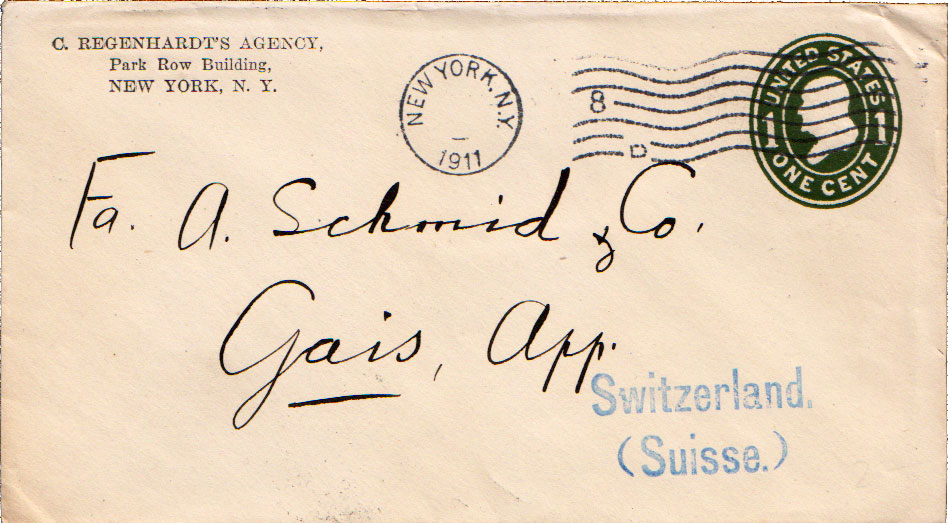 C. REGENHARDT'S AGENCY,
Park Row Building,
NEW YORK, N. Y.
NEW YORK, N.Y.
1911
8
D
UNITED STATES
1 1
ONE CENT
Fa. A. Schmid & Co.
Gais, App.
Switzerland.
(Suisse.)